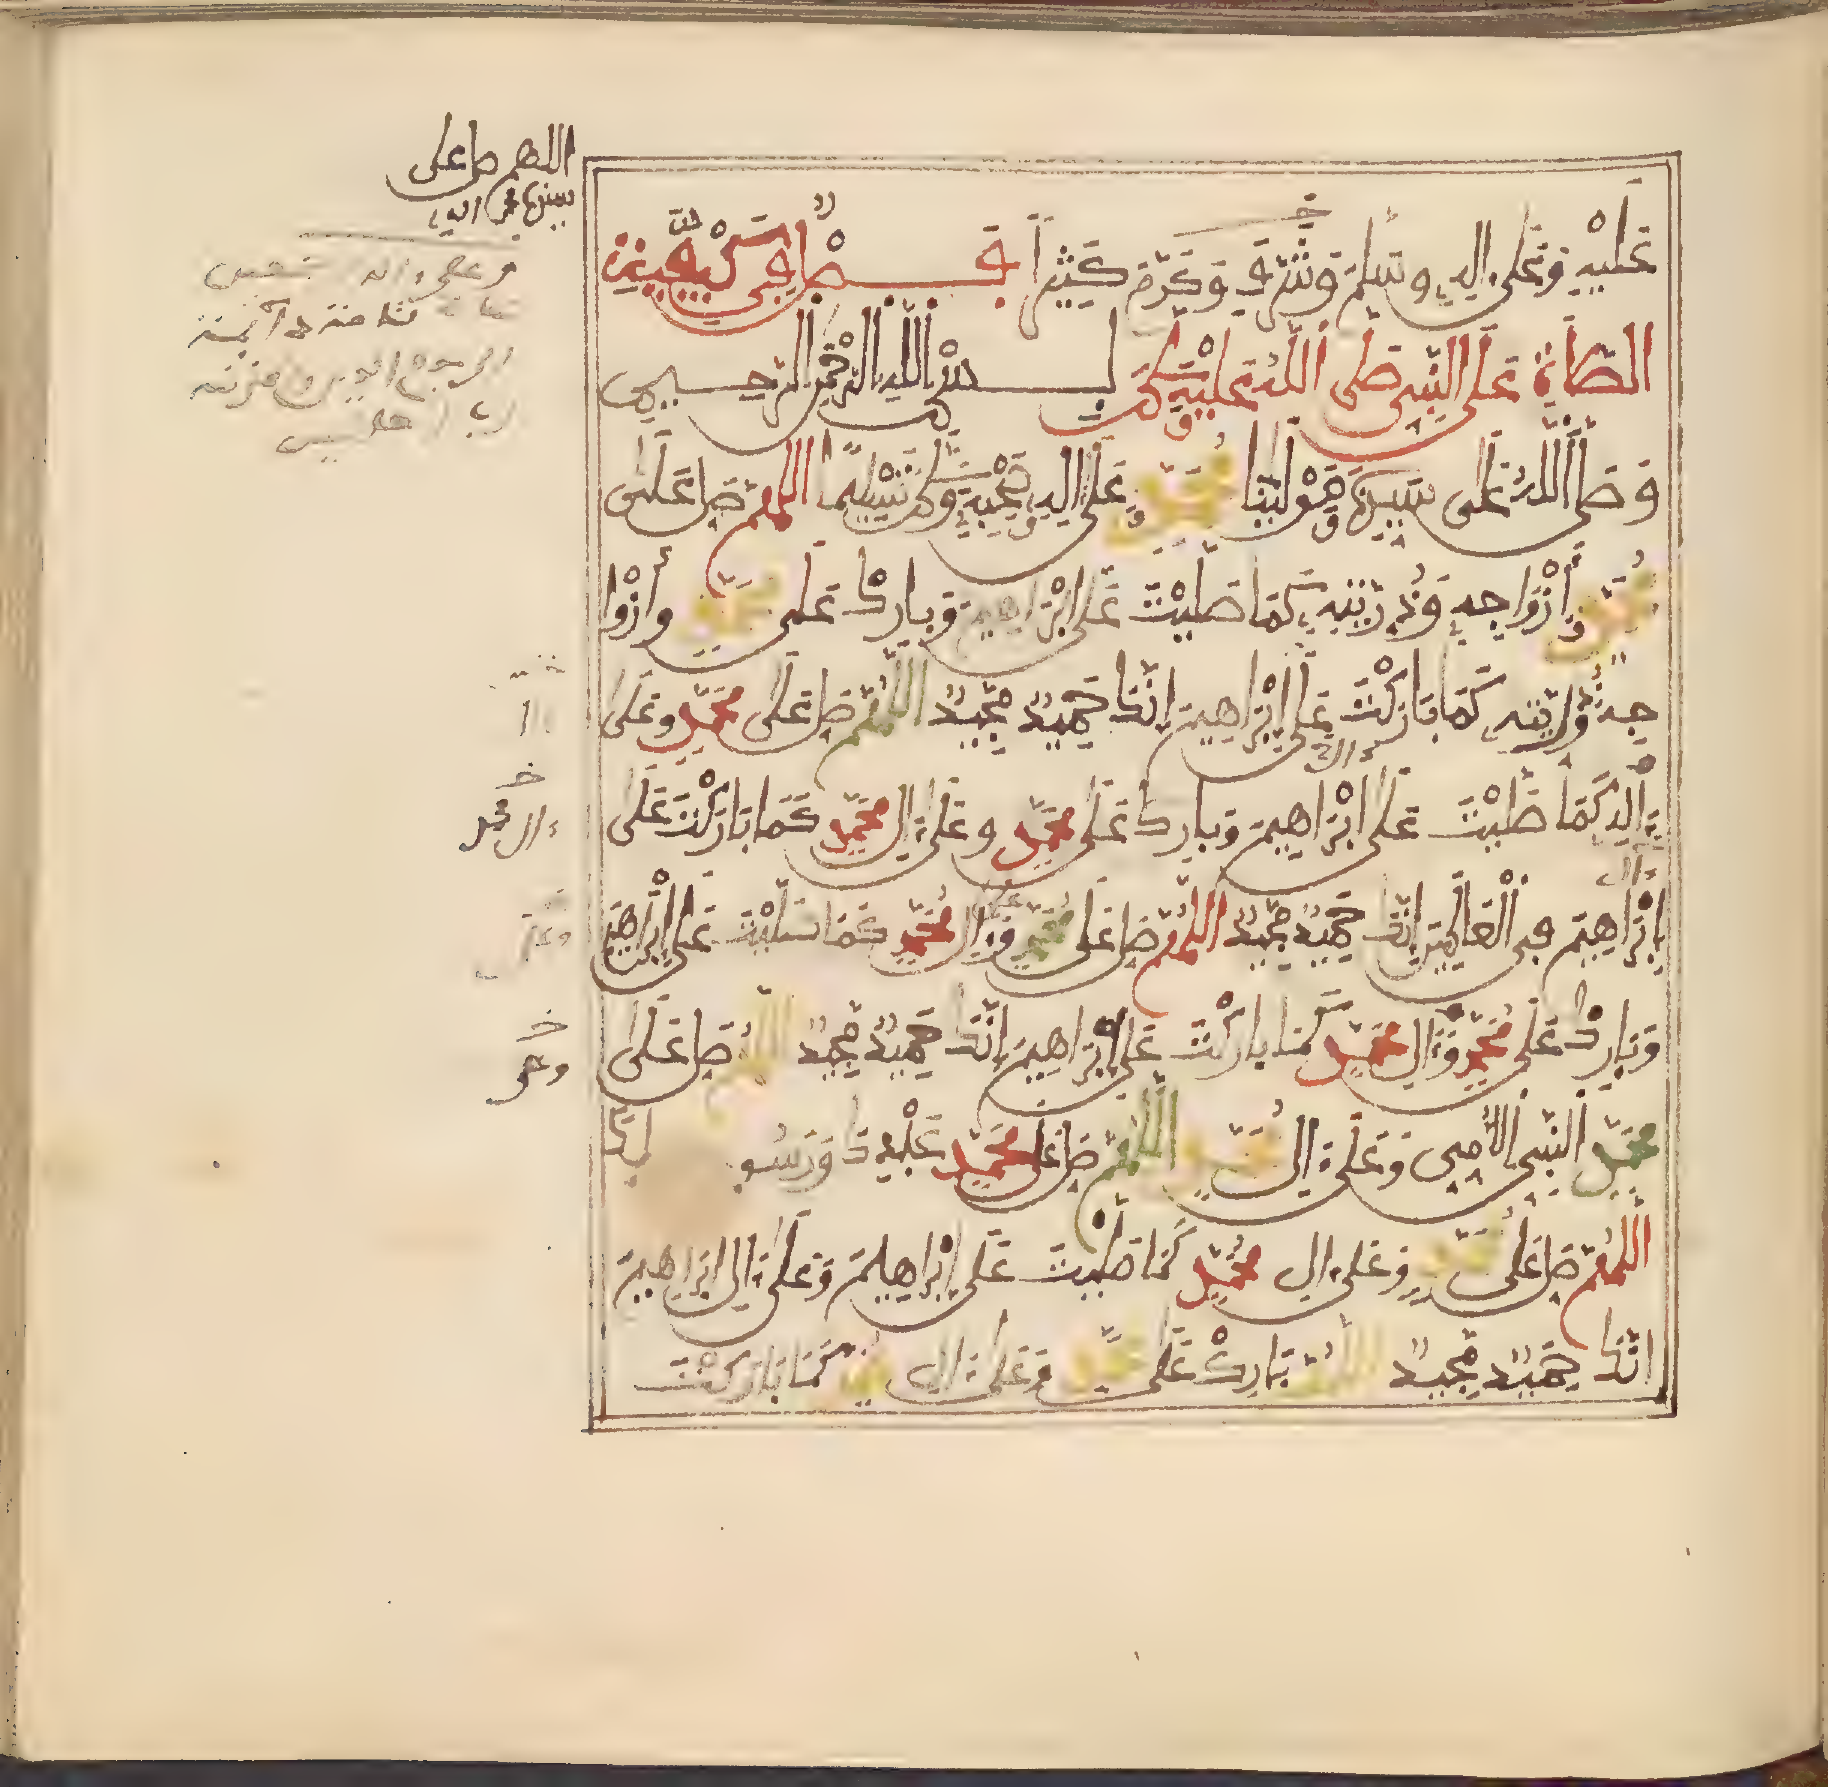 عَلَيْهِ وَعَلَى ءَالِهِ وَسَلَّمَ وَشَرَّفَ وَكَرَّمَ كَثِيراً فَصْلٌ فِي كَيْفِيَّةِ
الصَّلَاةِ عَلَى النَّبِيِّ صَلَّى اللَّهُ عَلَيْهِ وَسَلَّمَ بِسْمِ اللَّهِ الرَّحْمَنِ الرَّحِيمِ
وَصَلَّى اللَّهُ عَلَى سَيِّدِنَا وَمَوْلَانَا مُحَمَّدٍ وَعَلَى ءَالِهِ وَصَحْبِهِ وَسَلَّمَ تَسْلِيمًا اللَّهُمَّ صَلِّ عَلَى
مُحَمَّدٍ وَأَزْوَاجِهِ وَذُرِّيَّتِهِ كَمَا صَلَّيْتَ عَلَى إِبْرَاهِيمَ وَبَارِكْ عَلَى مُحَمَّدٍ وَأَزْوَا
جِهِ وَذُرِّيَّتِهِ كَمَا بَارَكْتَ عَلَى إِبْرَاهِيمَ إِنَّكَ حَمِيدٌ مَجِيدٌ اللَّهُمَّ صَلِّ عَلَى مُحَمَّدٍ وَعَلَى
ءَالِهِ كَمَا صَلَّيْتَ عَلَى إِبْرَاهِيمَ وَبَارِكْ عَلَى مُحَمَّدٍ وَعَلَى ءَالِ مُحَمَّدٍ كَمَا بَارَكْتَ عَلَى
إِبْرَاهِيمَ فِي الْعَالَمِينَ إِنَّكَ حَمِيدٌ مَجِيدٌ اللَّهُمَّ صَلِّ عَلَى مُحَمَّدٍ وَءَالِ مُحَمَّدٍ كَمَا صَلَّيْتَ عَلَى إِبْرَاهِيمَ
وَبَارِكْ عَلَى مُحَمَّدٍ وَءَالِ مُحَمَّدٍ كَمَا بَارَكْتَ عَلَى إِبْرَاهِيمَ إِنَّكَ حَمِيدٌ مَجِيدٌ اللَّهُمَّ صَلِّ عَلَى
مُحَمَّدٍ النَّبِيِّ الْأُمِّيِّ وَعَلَى ءَالِ مُحَمَّدٍ اللَّهُمَّ صَلِّ عَلَى مُحَمَّدٍ عَبْدِكَ وَرَسُولِكَ
اللَّهُمَّ صَلِّ عَلَى مُحَمَّدٍ وَعَلَى ءَالِ مُحَمَّدٍ كَمَا صَلَّيْتَ عَلَى إِبْرَاهِيمَ وَعَلَى ءَالِ إِبْرَاهِيمَ
إِنَّكَ حَمِيدٌ مَجِيدٌ اللَّهُمَّ بَارِكْ عَلَى مُحَمَّدٍ وَعَلَى ءَالِ مُحَمَّدٍ كَمَا بَارَكْتَ
اللهم صل على
سيدنا محمد النبي
وعلى ءاله
ءال محمد